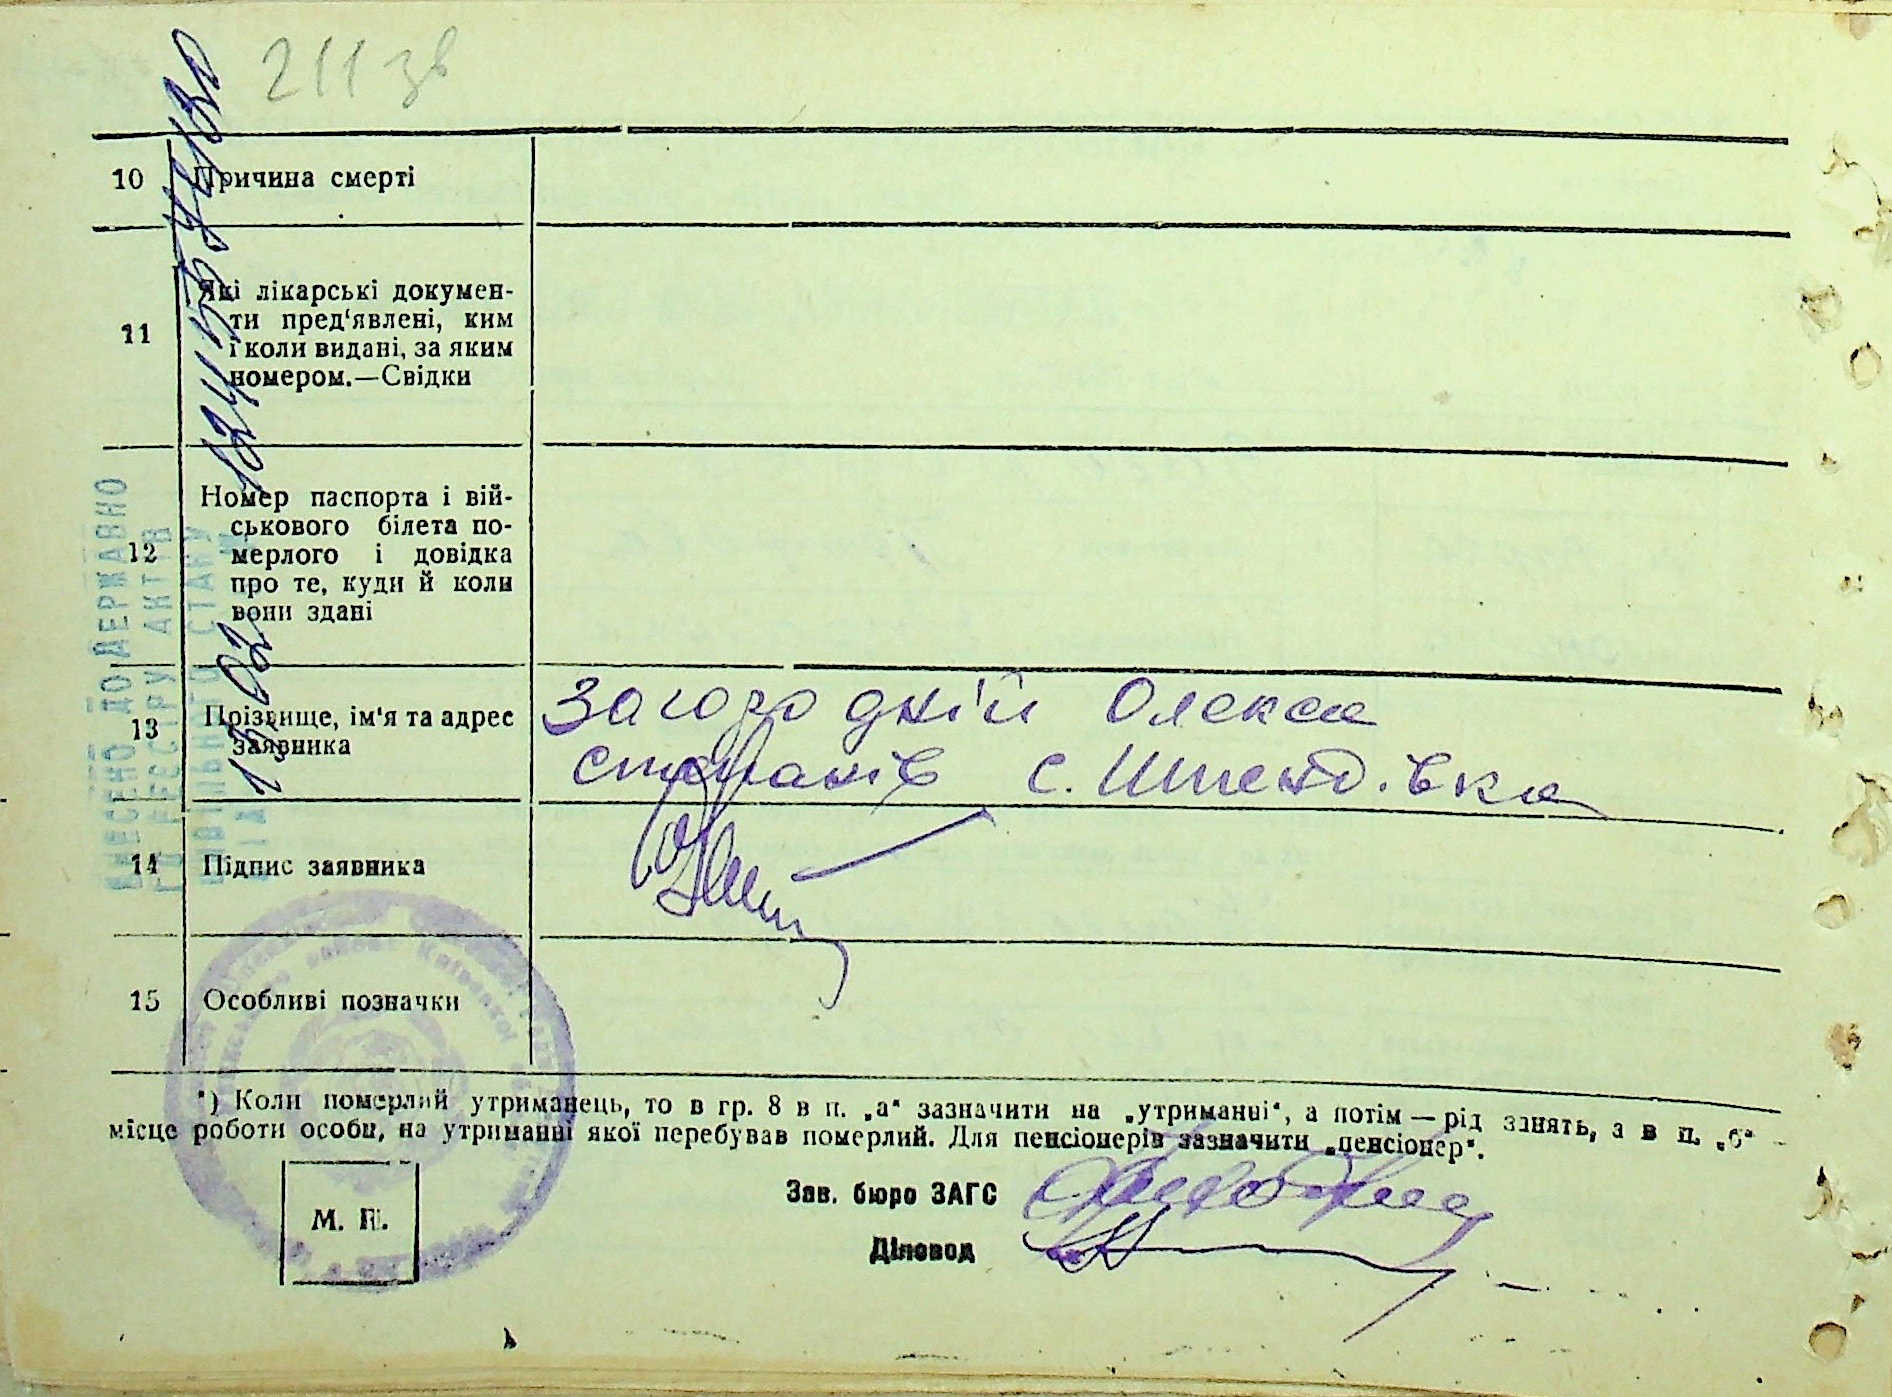 211 зв
10 Причина смерті
11 Які лікарські докумен-
ти пред'явлені, ким
і коли видані, за яким
номером.—Свідки
12 Номер паспорта і вій-
ськового білета по-
мерлого і довідка
про те, куди й коли
вони здані
13 Прізвище, ім'я та адрес
заявника
Загородній Олекса
Степанів с. Шпендівка
14 Підпис заявника
15 Особливі позначки
*) Коли померлий утриманець, то в гр. 8 в п. „а“ зазначити на „утриманні“, а потім — рід занять, а в п. „б“ —
місце роботи особи, на утриманні якої перебував померлий. Для пенсіонерів зазначити „пенсіонер“.
Зав. бюро ЗАГС
Діловод
М. П.
ВНЕСЕНО ДО ДЕРЖАВНО
ГО РЕЄСТРУ АКТІВ
ЦИВІЛЬНОГО СТАНУ